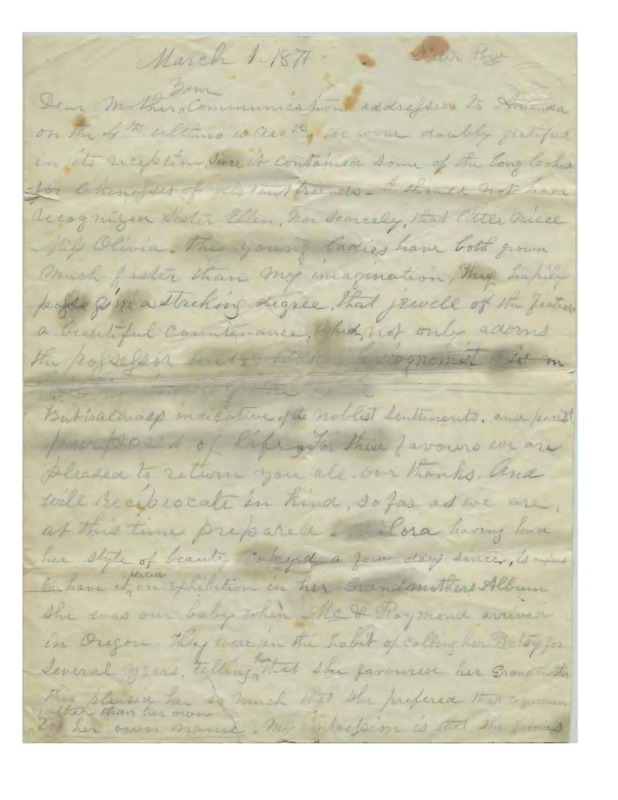 March 1-1871
Your
Dear Mother, Communication addressed to Amanda
on the 4th ultimo is recd, we were doubly gratified
in its reception, since it contained some of the long looked
for likenesses of distant friends - I should not have
recognized Sister Ellen, nor scarcely, that little niece
Miss Olivia. The young ladies have both grown
much faster than my imagination, they hapily
possess in a streking degree, that jewell of the
a beautiful countenance, which, not only adorns
the possessor
But is always indicative of the noblest sentiments. and purest
purposes of life, For these favours we are
pleased to return you all our thanks. And
will reciprocate in kind, so far as we are,
at this time prepared - Lora having had
her style of beauty, copyed a few days since, is
to have it on exhibition in her Grandmothers Album
She was our baby when Mc & Raymond arrived
in Oregon. They were in the habit of calling her Betsy for
several years, telling her that she favoured her Grandmother
this pleased her so much that she prefered that
rather than her own
her own name. My impression is that she favours